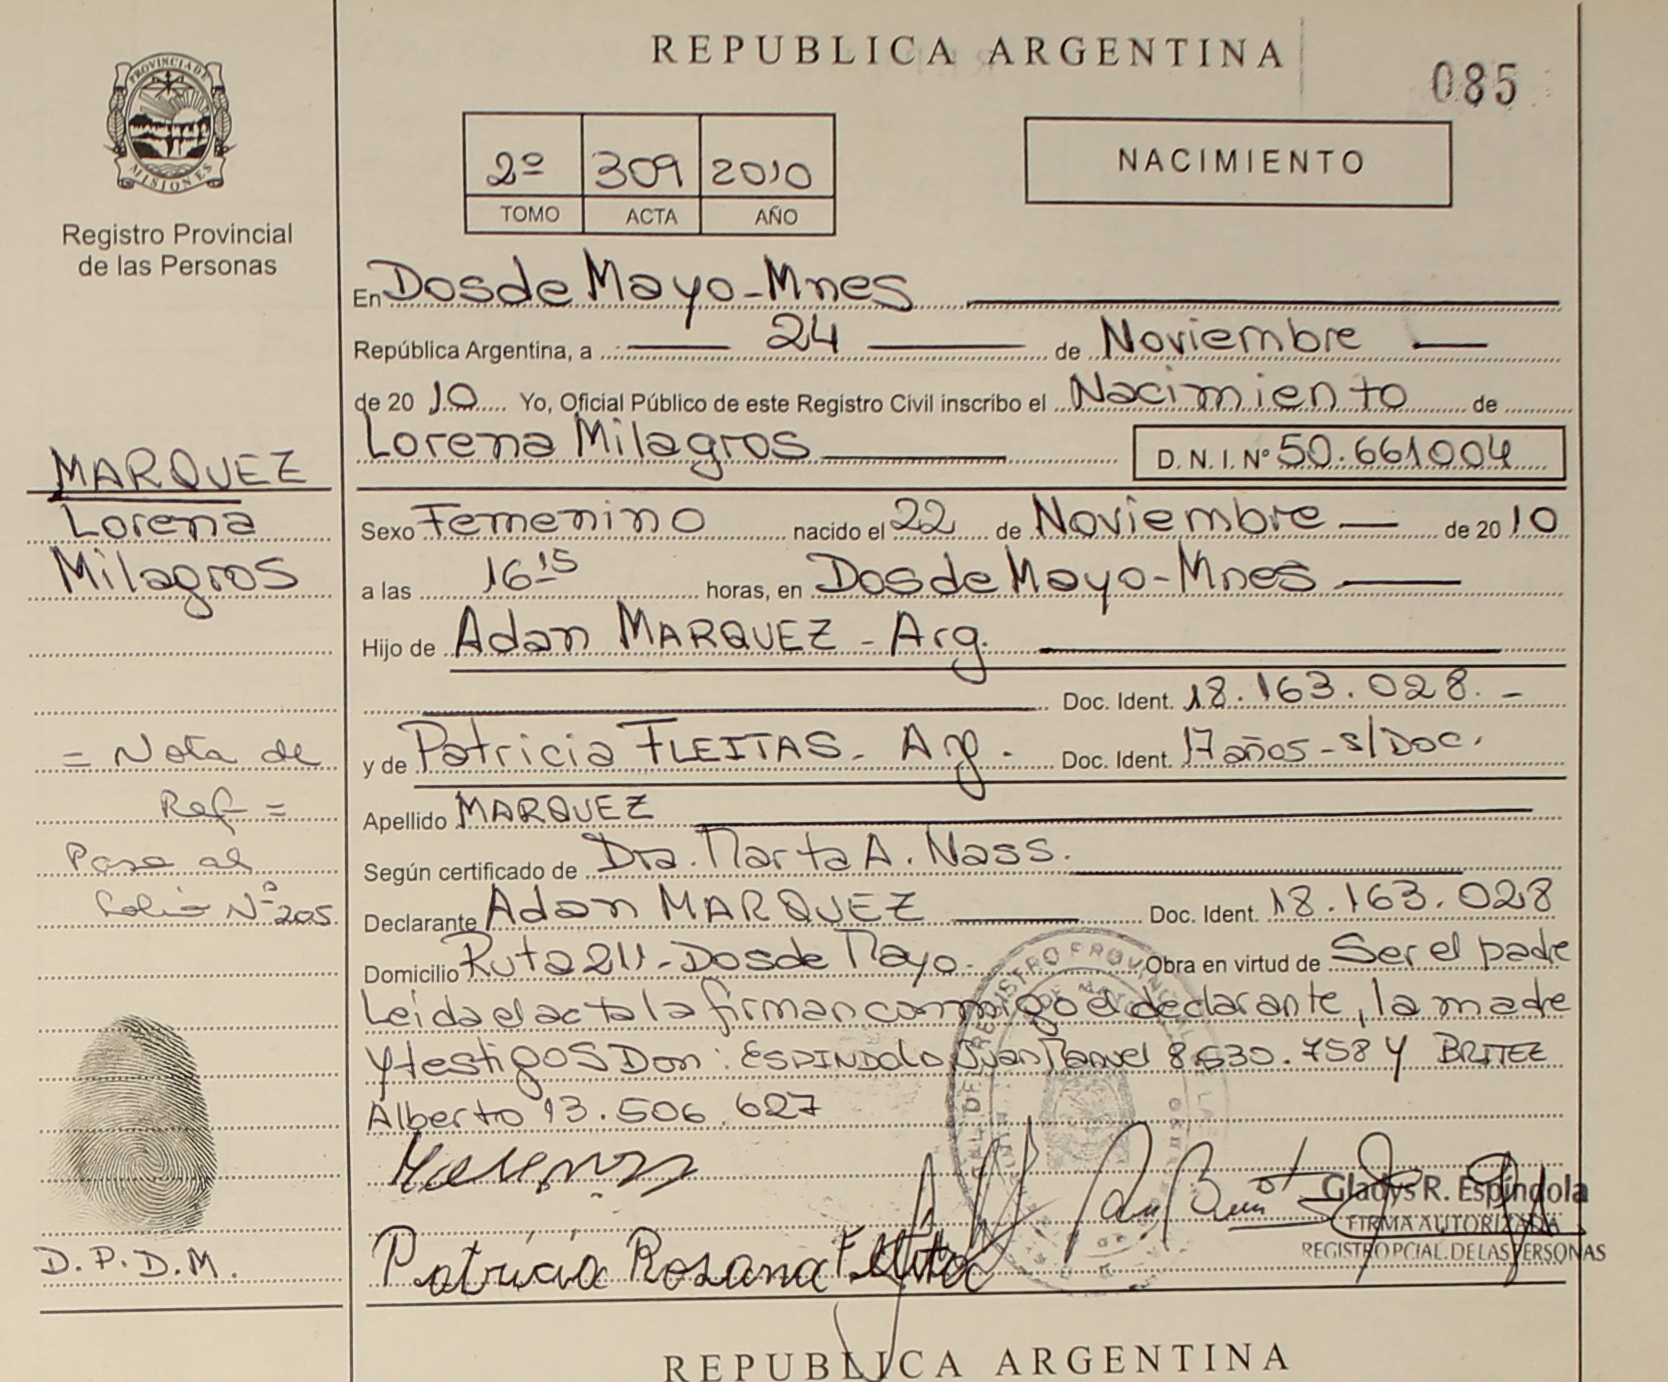 REPUBLICA ARGENTINA
085
PROVINCIA DE
MISIONES
Registro Provincial
de las Personas
2º 309 2010
TOMO ACTA AÑO
NACIMIENTO
En Dos de Mayo - Mnes
República Argentina, a 24 de Noviembre
de 2010 Yo, Oficial Público de este Registro Civil inscribo el Nacimiento de
Lorena Milagros D.N.I. Nº 50.661004
MARQUEZ
Lorena
Milagros
Sexo Femenino nacido el 22 de Noviembre de 2010
a las 16 15 horas, en Dos de Mayo - Mnes
Hijo de Adan MARQUEZ - Arg.
Doc. Ident. 18.163.028. -
y de Patricia FLEITAS - Arg. Doc. Ident. 17 años - s/Doc.
Apellido MARQUEZ
Según certificado de Dra. Marta A. Nass.
Declarante Adan MARQUEZ Doc. Ident. 18.163.028
Domicilio Ruta 211 - Dos de Mayo. Obra en virtud de Ser el padre
Leida el acta la firman conmigo el declarante, la madre
y testigos Don: ESPINDOLA Juan Manuel 8.630.758 Y BRITEZ
Alberto 13.506.627
= Nota de
Ref =
Pasa al
Folio Nº 205.
D.P.D.M.
Patricia Rosana
Gladys R. Espíndola
FIRMA AUTORIZADA
REGISTRO PCIAL. DE LAS PERSONAS
REPUBLICA ARGENTINA